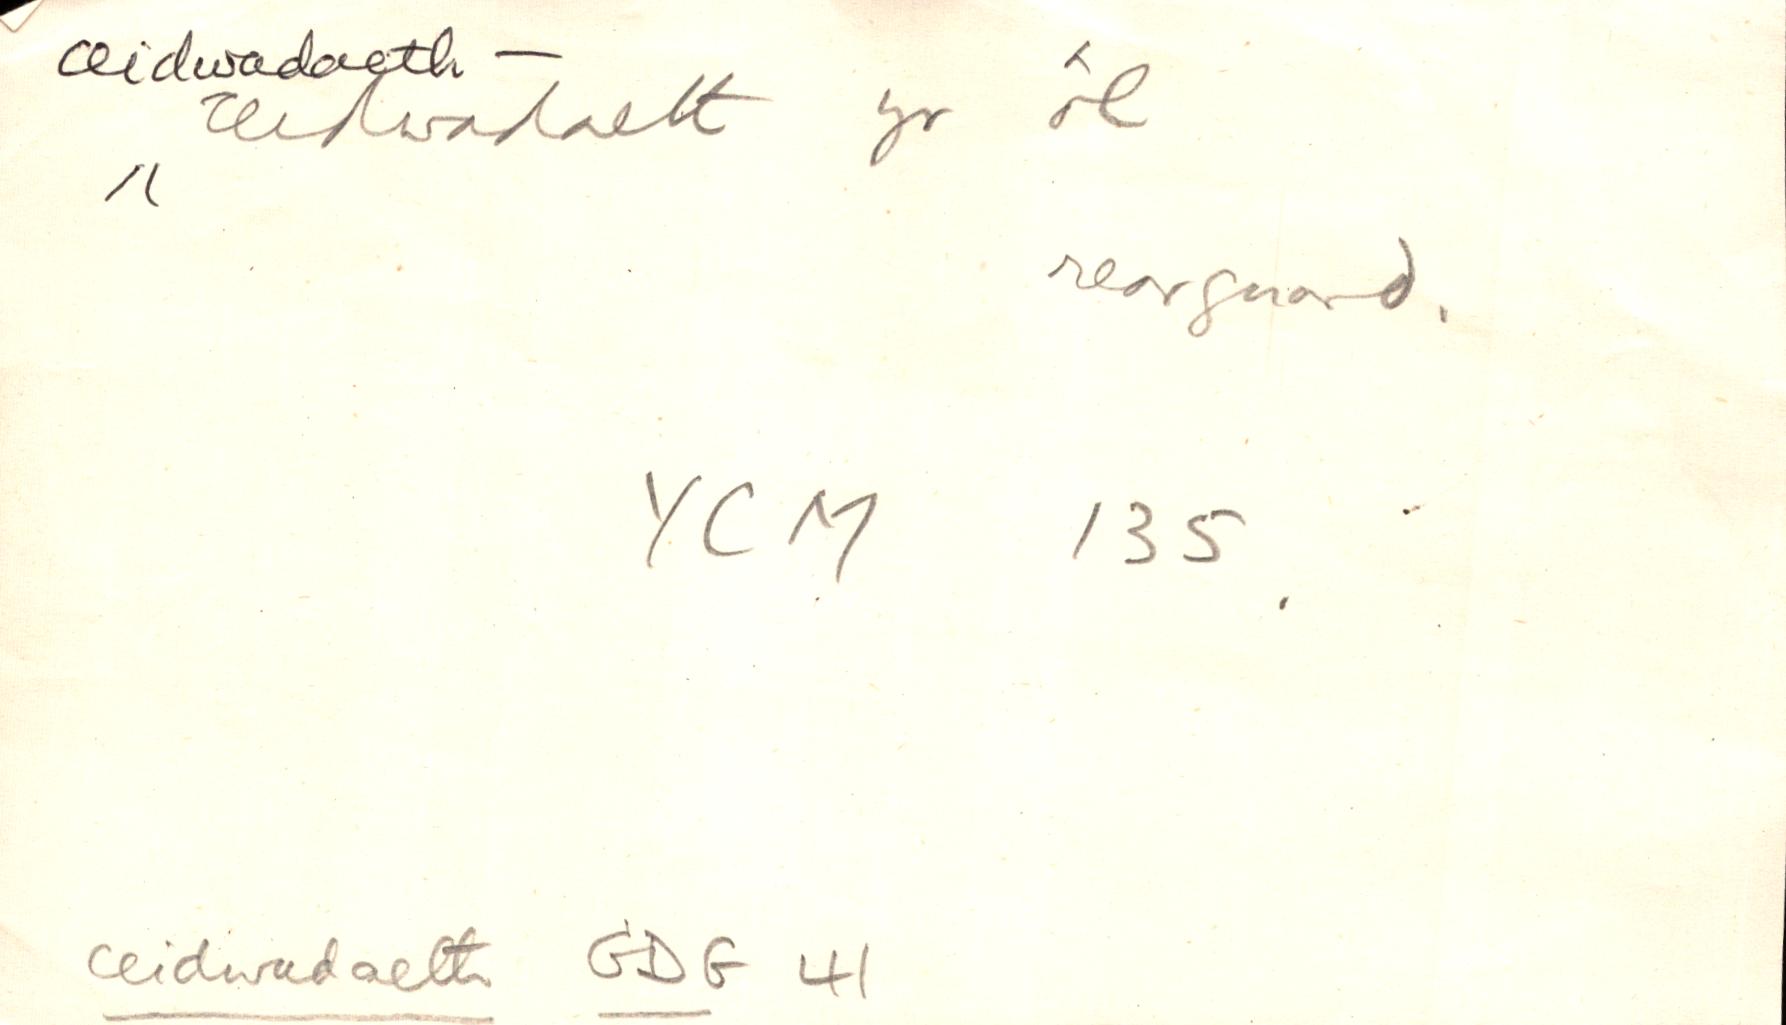 ceidwadaeth —
ceidwadaeth yr ôl
rearguard.
YCM 135.
ceidwadaeth GDG 41